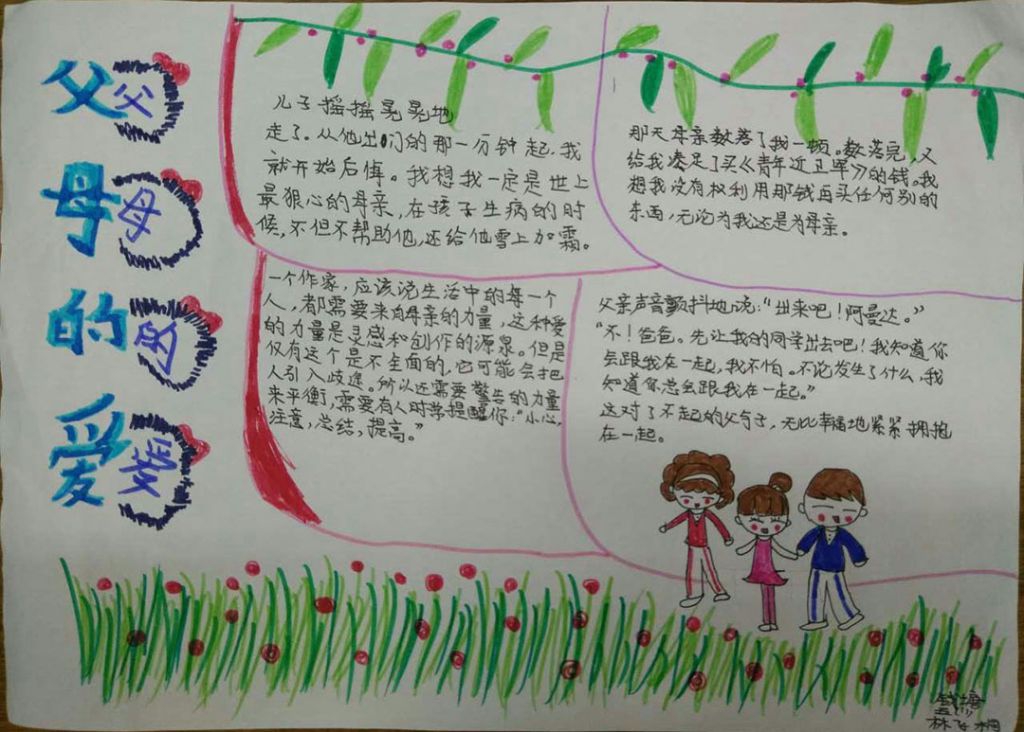 父父
母母
的的
爱爱
儿子摇摇晃晃地
走了。从他出门的那一分钟起，我
就开始后悔。我想我一定是世上
最狠心的母亲，在孩子生病的时
候，不但不帮助他，还给他雪上加霜。
那天母亲数落了我一顿。数落完，又
给我凑足了买《青年近卫军》的钱。我
想我没有权利用那钱再买任何别的
东西，无论为我还是为母亲。
一个作家，应该说生活中的每一个
人，都需要来自母亲的力量，这种爱
的力量是灵感和创作的源泉。但是
仅有这个是不全面的，它可能会把
人引入歧途。所以还需要警告的力量
来平衡，需要有人时常提醒你：“小心，
注意，总结，提高。”
父亲声音颤抖地说：“出来吧！阿曼达。”
“不！爸爸。先让我的同学出去吧！我知道你
会跟我在一起，我不怕。不论发生了什么，我
知道你总会跟我在一起。”
这对了不起的父与子，无比幸福地紧紧拥抱
在一起。